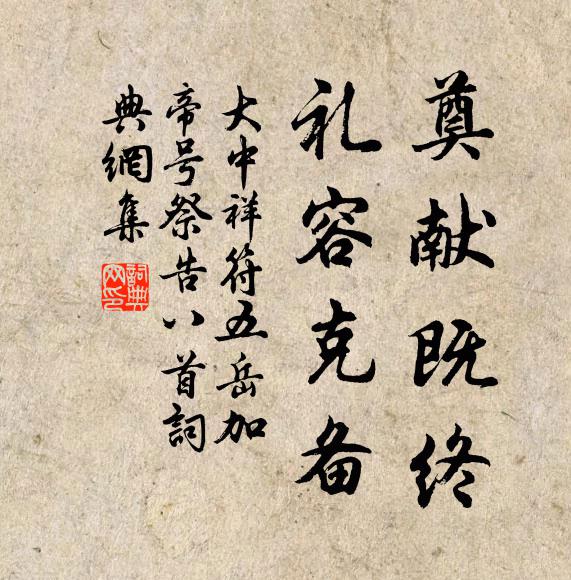 奠献既终
礼容克备
大中祥符五岳加
帝号祭告八首詞
典網集
詞典
网印